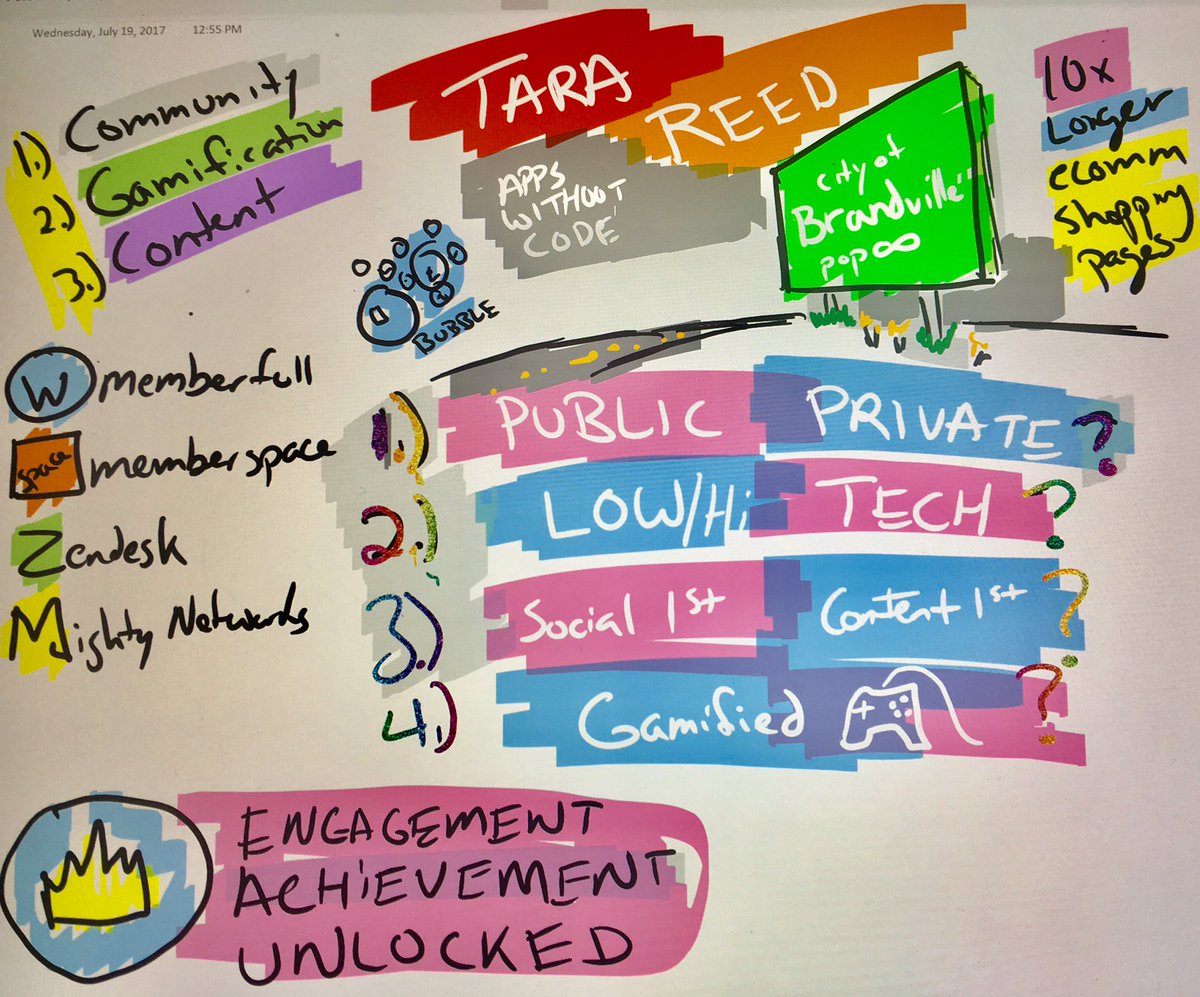 Wednesday, July 19, 2017 12:55 PM
1.) Community
2.) Gamification
3.) Content
TARA
REED
APPS
WITHOUT
CODE
BUBBLE
City of
Brandville
pop ∞
10x
Longer
ecomm
shopping
pages
W memberfull
space memberspace
Zendesk
Mighty Networks
1.) PUBLIC PRIVATE?
2.) LOW/Hi TECH?
3.) Social 1st Content 1st?
4.) Gamified?
ENGAGEMENT
ACHiEVEMENT
UNLOCKED